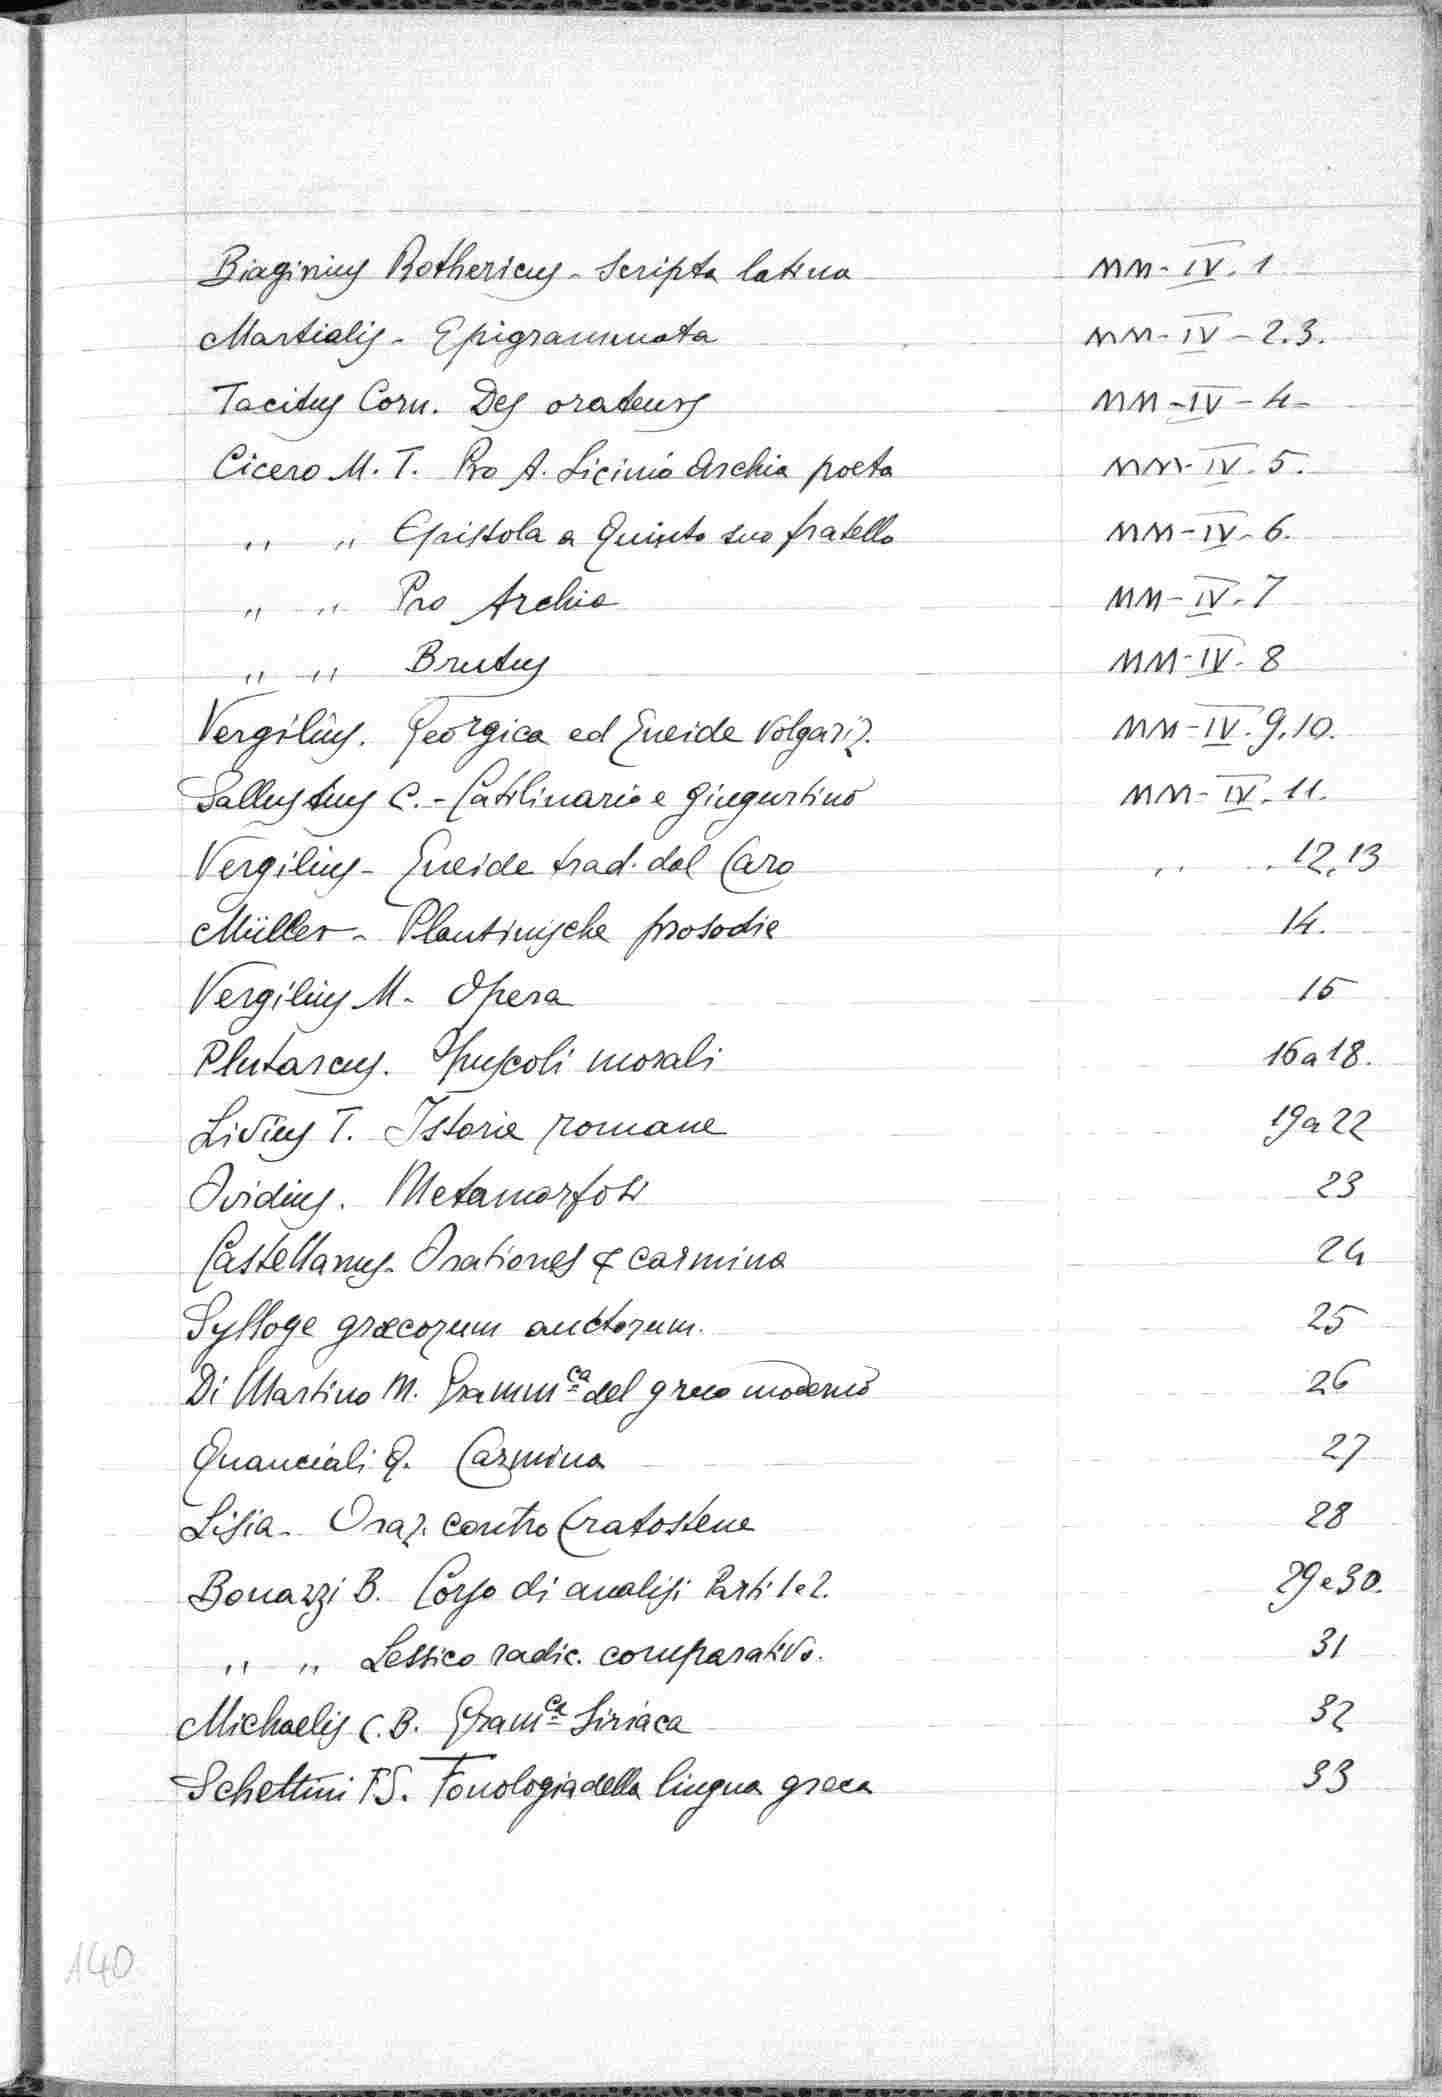 Biaginius Rothericus - Scripta latina MM - IV. 1
Martialis - Epigrammata MM - IV - 2.3.
Tacitus Corn. Des orateurs MM - IV - 4 -
Cicero M. T. Pro A. Licinio Archia poeta MM - IV. 5.
" " Epistola a Quinto suo fratello MM - IV - 6.
" " Pro Archia MM - IV. 7
" " Brutus MM - IV. 8
Vergilius. Georgica ed Eneide Volgariz. MM - IV. 9,10.
Sallustius C. - Catilinario e Giugurtino MM - IV. 11.
Vergilius - Eneide trad. dal Caro " " 12,13
Müller - Plautinische prosodie 14.
Vergilius M. Opera 15
Plutarcus. Opuscoli morali 16 a 18.
Livius T. Istorie romane 19 a 22
Ovidius. Metamorfosi 23
Castellanus - Orationes & carmina 24
Sylloge græcorum auctorum. 25
Di Martino M. Gramm.ca del greco moderno 26
Quanciali Q. Carmina 27
Lisia - Oraz. contro Eratostene 28
Bonazzi B. Corso di analisi Parti 1 e 2. 29 e 30.
" " Lessico radic. comparativo. 31
Michaelis C. B. Gram.ca Siriaca 32
Schettini F S. Fonologia della lingua greca 33
140